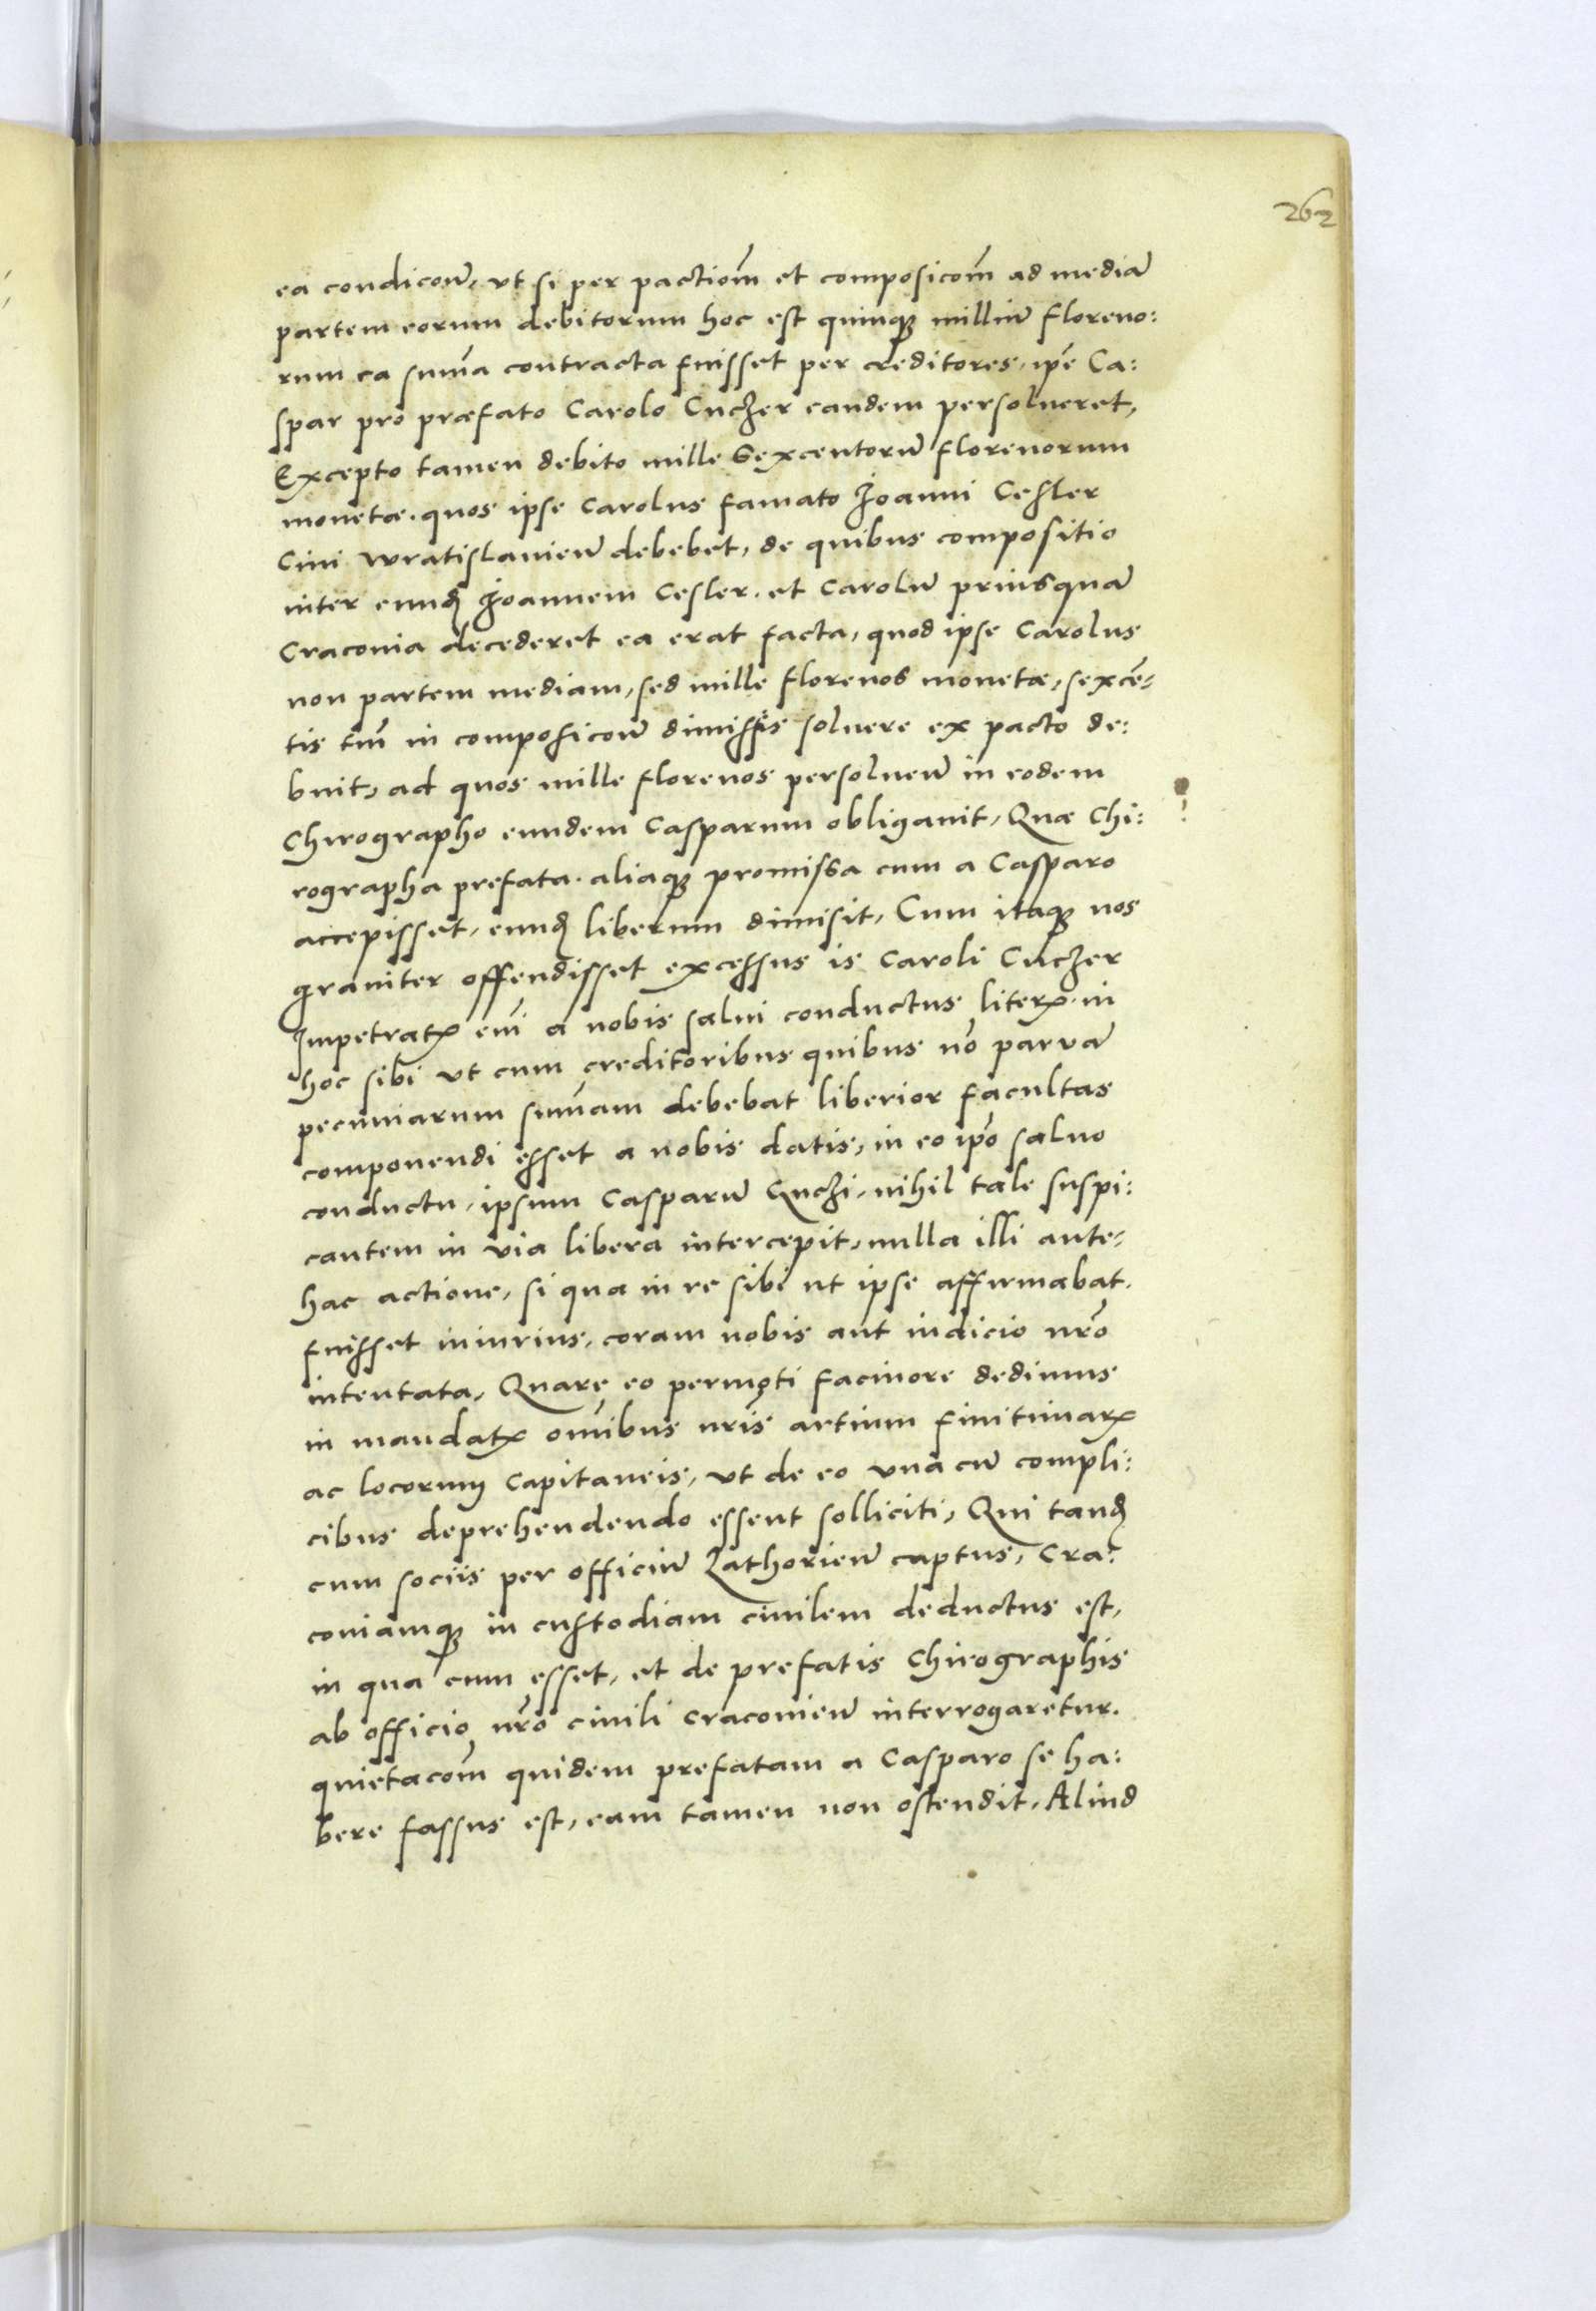 262
ea condicoē, vt si per pactiom̄ et composicom̄ ad mediā
partem eorum debitorum hoc est quinqꝫ milliū floreno:
rum ea sum̄a contracta fuisset per creditores, ip̄e Ca:
spar pro præfato Carolo Cuczer eandem persolueret,
Excepto tamen debito mille Sexcentorū florenorum
monetæ. quos ipse Carolus famato Joanni Cesler
Ciui wratislauieñ debebet, de quibus compositio
inter eundꝫ Joannem Cesler. et Carolū priusquā
Cracouia decederet ea erat facta, quod ipse Carolus
non partem mediam, sed mille florenos monetæ, sexcē-
tis tm̄ in composicoē dimissis soluere ex pacto de:
buit, ad quos mille florenos persolueñ in eodem
Chirographo eundem Casparum obligauit, Quæ Chi:
rographa prefata. aliaqꝫ promissa cum a Casparo
accepisset, eundꝫ liberum dimisit, Cum itaqꝫ nos
grauiter offendisset excessus is Caroli Cuczer
Impetratꝭ em̄ a nobis salui conductus literꝭ. in
hoc sibi vt cum creditoribus quibus nō paruā
pecuniarum sum̄am debebat liberior facultas
componendi esset a nobis datis, in eo ip̄o saluo
conductu, ipsum Casparū Guczi, nihil tale suspi:
cantem in via libera intercepit, nulla illi ante-
hac actione, si qua in re sibi ut ipse affirmabat.
fuisset iniurius, coram nobis aut iudicio nr̄o
intentata, Quare eo permoti facinore dedimus
in mandatꝭ om̄ibus nr̄is artium finitimarꝝ
ac locorum Capitaneis, vt de eo vna cū compli:
cibus deprehendendo essent solliciti, Qui tandꝫ
cum sociis per officiū Zathorieñ captus, Cra:
couiamqꝫ in custodiam ciuilem deductus est,
in qua cum esset, et de prefatis Chirographis
ab officio nr̄o ciuili Cracouieñ interrogaretur.
quietacom̄ quidem prefatam a Casparo se ha:
bere fassus est, eam tamen non ostendit. Aliud